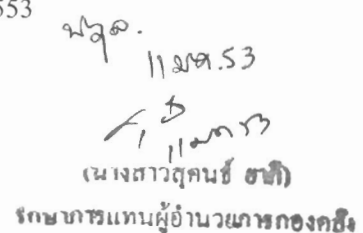 553
11 มค. 53
11 มค 53
(นางสาวสุคนธ์
รักษาการแทนผู้อำนวยการกองคลัง